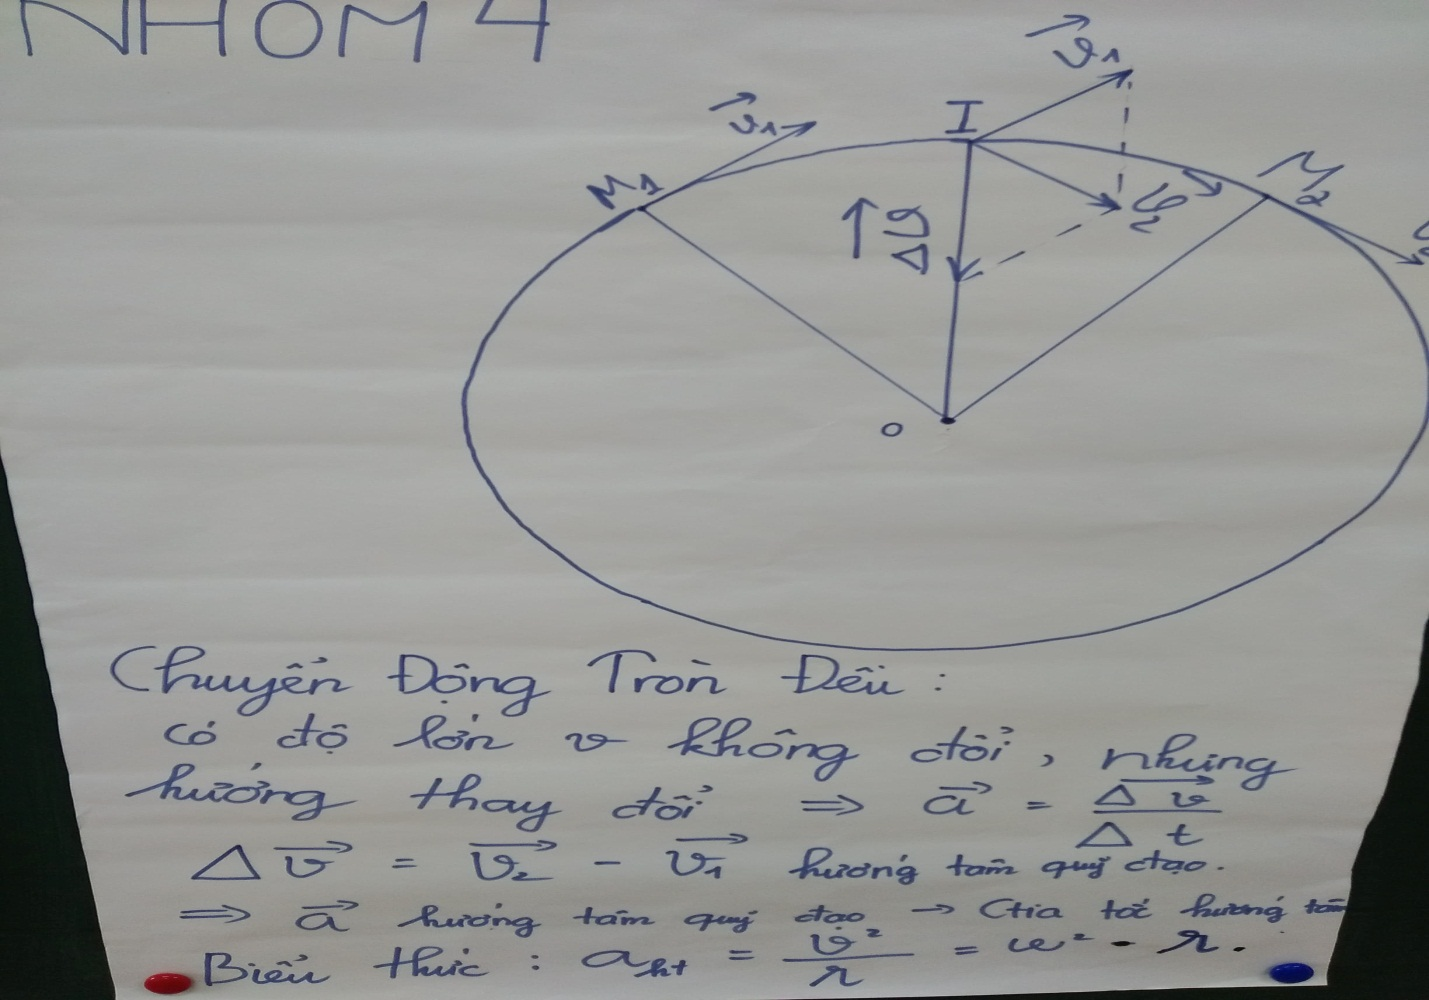 NHÓM 4
v₁
I
v₁
M₁
M₂
Δv
v₂
O
Chuyển Động Tròn Đều :
có độ lớn v không đổi, nhưng
hướng thay đổi ⇒ a = Δv / Δt
Δv = v₂ - v₁ hướng tâm quỹ đạo.
⇒ a hướng tâm quỹ đạo → Gia tốc hướng tâm
Biểu thức : aht = v² / r = ω² · r.